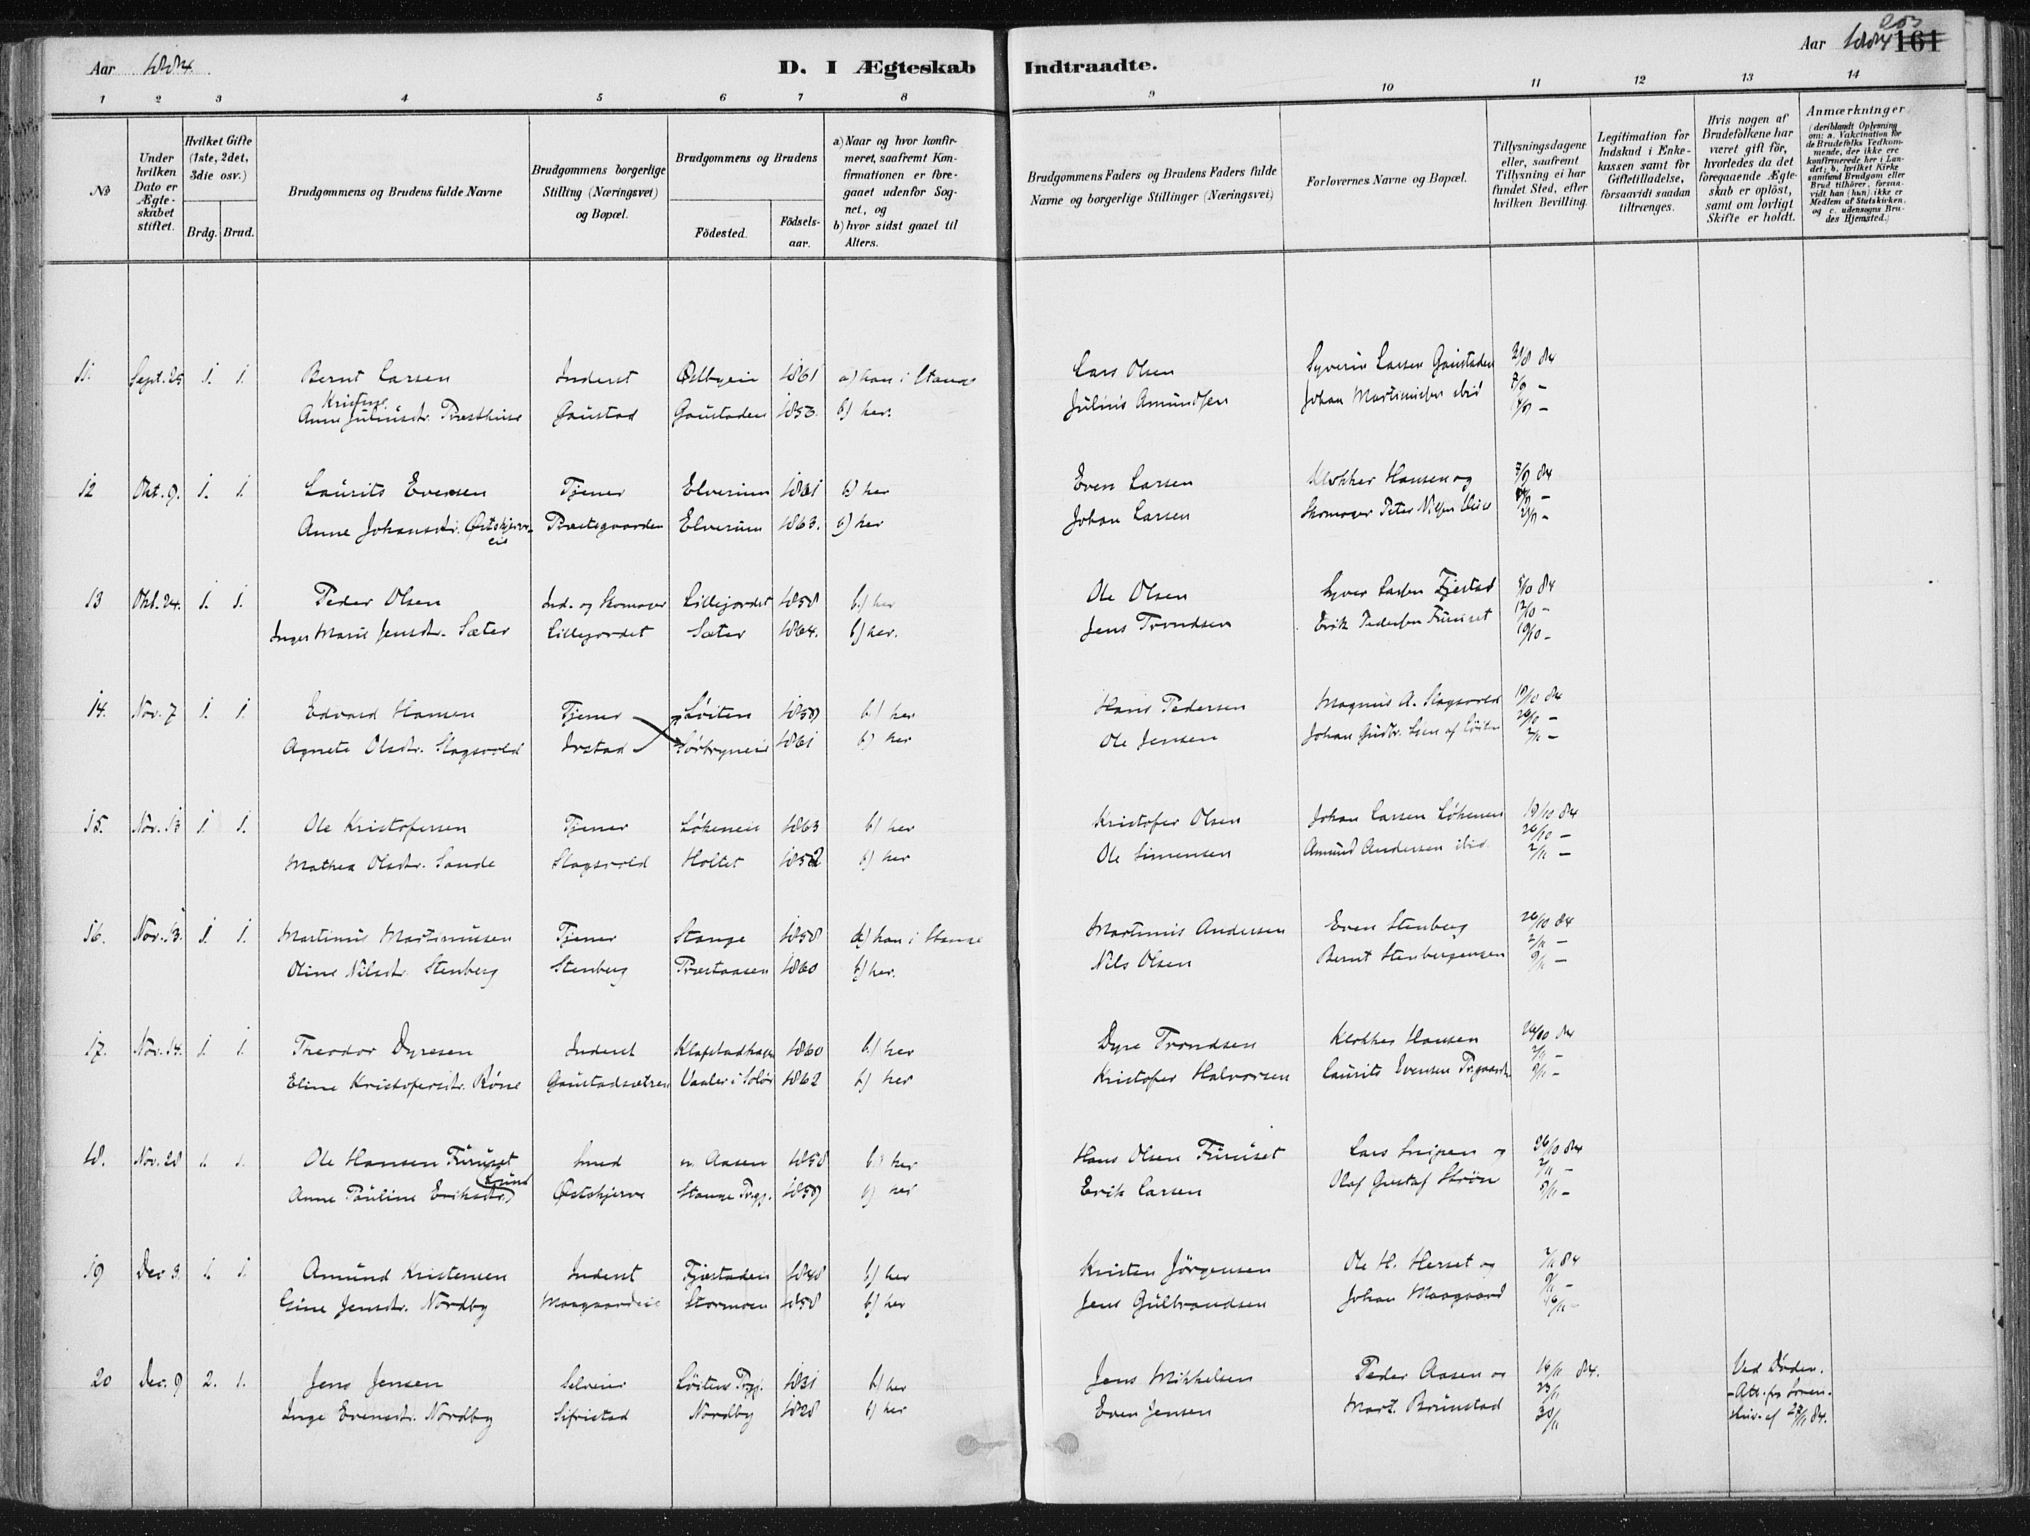 Aar 1884.
D. I Ægteskab Indtraadte.
Aar 1884 161
203
1 2 3 4 5 6 7 8 9 10 11 12 13 14
No
Under hvilken Dato er Ægteskabet stiftet.
Hvilket Gifte (1ste, 2det, 3die osv.)
Brdg. Brud.
Brudgommens og Brudens fulde Navne
Brudgommens borgerlige Stilling (Næringsvei) og Bopæl.
Brudgommens og Brudens
Födested.
Födsels-aar.
a) Naar og hvor konfirmeret, saafremt Konfirmationen er foregaaet udenfor Sognet, og
b) hvor sidst gaaet til Alters.
Brudgommens Faders og Brudens Faders fulde Navne og borgerlige Stillinger (Næringsvei)
Forlovernes Navne og Bopæl.
Tillysningsdagene eller, saafremt Tillysning ei har fundet Sted, efter hvilken Bevilling.
Legitimation for Indskud i Enkekassen samt for Giftetilladelse, forsaavidt saadan tiltrænges.
Hvis nogen af Brudefolkene har været gift för, hvorledes da det foregaaende Ægteskab er oplöst, samt om lovligt Skifte er holdt.
Anmærkninger (deriblandt Oplysning om: a. Vakcination for de Brudefolks Vedkommende, der ikke ere konfirmerede her i Landet; b. hvilket Kirkesamfund Brudgom eller Brud tilhörer, forsaavidt han (hun) ikke er Medlem af Statskirken, og c. udensogns Brudes Hjemsted.)
11. Sept. 25 1. 1. Bernt Larsen Inderst Østbyeie 1861 a) han i Stange Lars Olsen Syverin Larsen Gaustaden 31/8 84
Kristine
Anne Juliusdtr. Præsthuse Gaustad Gaustaden 1853. b) her. Julius Amundsen Johan Martinusen ibid 7/9 -
14/9 -
12 Okt. 9. 1. 1. Laurits Evensen Tjener Elverum 1861 b) her Even Larsen Klokker Hansen og 7/9 84
Anne Johansdtr. Østskjerv-eie Præstegaarden Elverum 1863. b) her Johan Larsen Skomager Peter Nilsen 21/9 -
13 Okt. 24. 1. 1. Peder Olsen Ind. og Skomager Lillejordet 1858 b) her Ole Olsen Syver Larsen Fjestad 5/10 84
Inger Marie Jensdtr. Sæter Lillejordet Sæter 1864. b) her. Jens Trondsen Erik Pedersen Furuset 12/10 -
19/10 -
14. Nov. 7 1. 1. Edvard Hansen Tjener Löiten 1859 b) her Hans Pedersen Magnus A. Slagsvold 19/10 84
Agnete Olsdtr. Slagsvold Irstad Sörbyneie 1861 b) her Ole Jensen Johan Gudbr. Lien af Löiten 26/10 -
2/11 -
15. Nov. 13 1. 1. Ole Kristofersen Tjener Løkeneie 1863 b) her Kristofer Olsen Johan Larsen Løkenen 19/10 84
Mathea Olsdtr. Sande Slagsvold Holtet 1852 b) her Ole Simensen Amund Andersen ibid. 26/10 -
2/11 -
16. Nov. 13. 1. 1. Martinus Martinusen Tjener Stange 1858 a) han i Stange Martinus Andersen Even Stenberg 26/10 84
Oline Nilsdtr. Stenberg Stenberg Præstaasen 1860 b) her. Nils Olsen Bernt Stenbergensen 2/11 -
9/11 -
17. Nov. 14. 1. 1. Theodor Dyresen Inderst Klafstadhagen 1860 b) her Dyre Trondsen Klokker Hansen 26/10 84
Eline Kristofersdtr. Röne Gaustadsætren Vaaler i Solör 1862 b) her Kristofer Halvorsen Laurits Evensen Prgaarden 2/11 -
9/11 -
18. Nov. 28 1. 1. Ole Hansen Furuset Smed n. Aasen 1858 b) her Hans Olsen Furuset Lars Snipen og 26/10 84
Anne Pauline Eriksdtr. (Lund) Østskjerve Stange Prgj. 1859 b) her Erik Larsen Olaf Gustaf Strön 2/11 -
19 Dec 3. 1. 1. Amund Kristensen Inderst Fjæstaden 1848 b) her Kristen Jörgensen Ole H. Herset og 2/11 84
Eine Jensdtr. Nordby Maagaardeie Stormoen 1858 b) her Jens Gulbrandsen Johan Maagaard 9/11 -
16/11 -
20 Dec. 9 2. 1. Jens Jensen Selveier Löiten Prgj. 1831 b) her Jens Mikkelsen Peder Aasen og 16/11 84. Ved Döden.
Inge Evensdtr. Nordby Sifristad Nordby 1828 b) her Even Jensen Mart. Brunstad 23/11 - Att. fra Soren-
30/11 skriv. af 28/11 84.